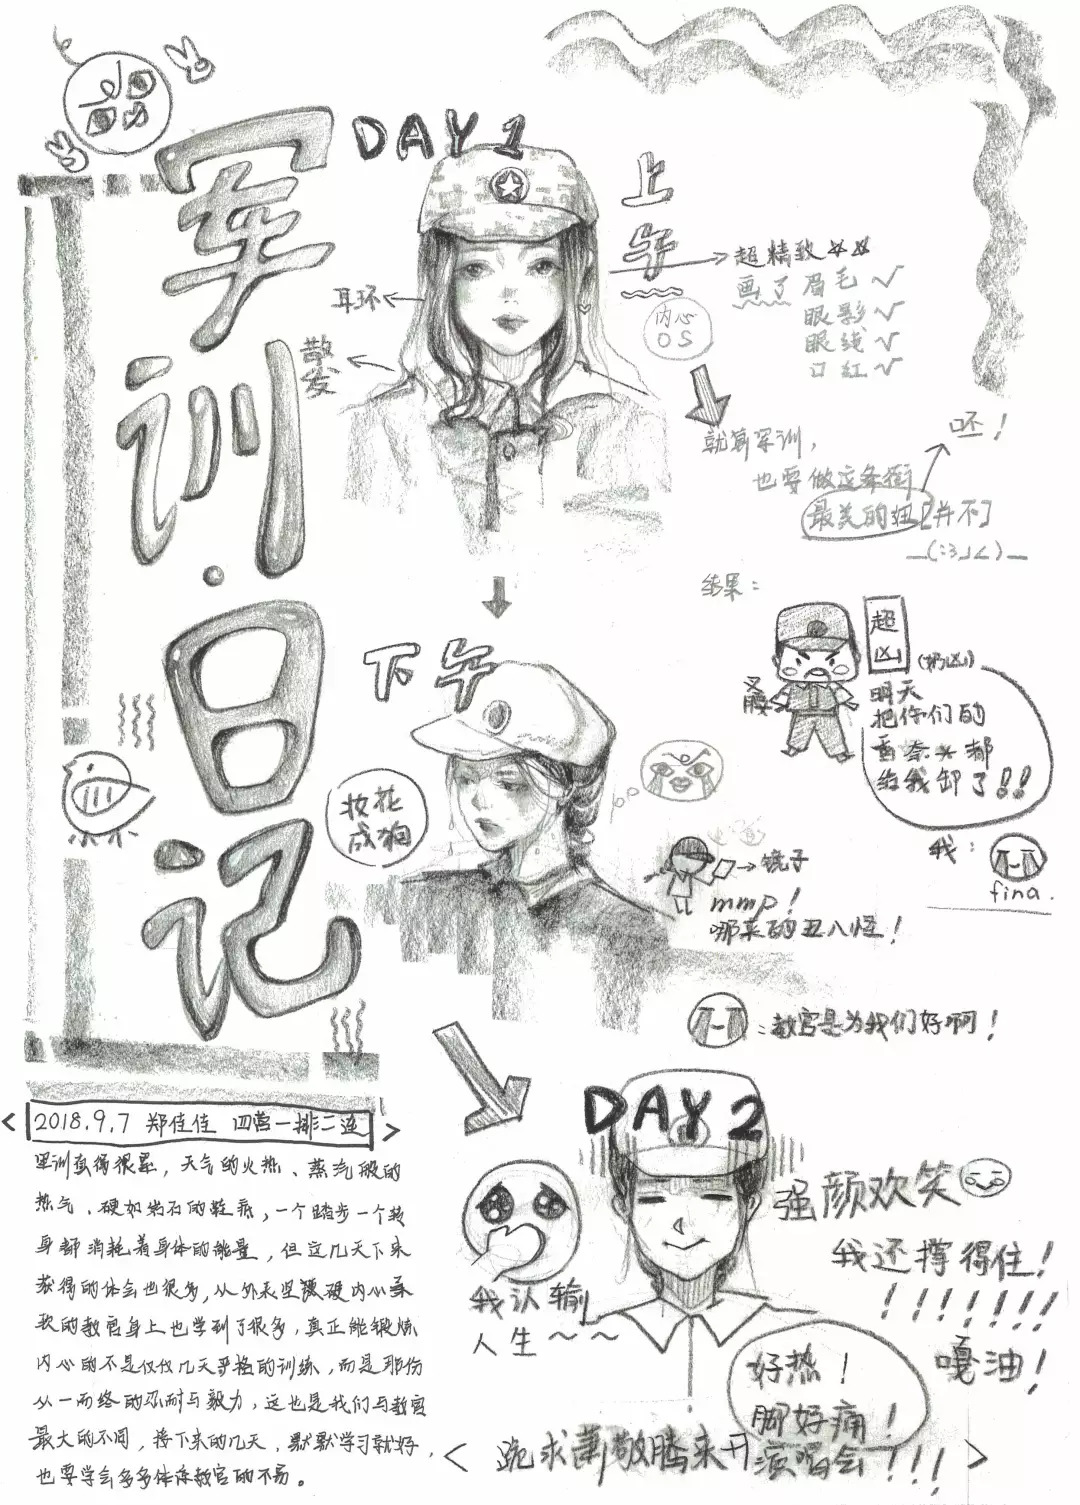 军训·日记
DAY 1
上午
超精致
画了眉毛 √
眼影 √
眼线 √
口红 √
耳环
散发
内心
OS
就算军训，
也要做这条街
最美的妞[并不]
呸！
_(:з」∠)_
结果：
下午
妆花
成狗
超凶
(奶凶)
叉腰
明天
把你们的
香奈儿都
给我卸了!!
我：
fina.
镜子
mmp!
哪来的丑八怪！
：教官是为我们好啊！
DAY 2
强颜欢笑
我还撑得住！
!!!!!!!
嘎油！
我认输
人生～～
好热！
脚好痛！
< 跪求萧敬腾来开演唱会!!! >
<2018.9.7 郑佳佳 四营一排二连>
军训真得很累，天气的火热、蒸汽般的
热气、硬如岩石的鞋底，一个踏步一个转
身都消耗着身体的能量，但这几天下来
获得的体会也很多，从外表坚硬内心柔
软的教官身上也学到了很多，真正能锻炼
内心的不是仅仅几天严格的训练，而是那份
从一而终的忍耐与毅力，这也是我们与教官
最大的不同，接下来的几天，默默学习就好，
也要学会多多体谅教官的不易。